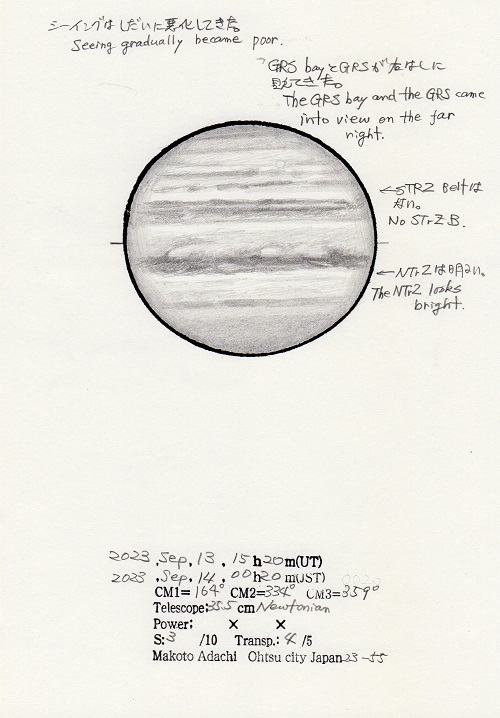 シーイングはしだいに悪化してきた。
Seeing gradually became poor.
GRS bayとGRSが右はしに
見えてきた。
The GRS bay and the GRS came
into view on the far
right.
←STRZ Beltは
ない。
No STrZ B.
←NTrZは明るい。
The NTrZ looks
bright.
2023 ,Sep, 13 , 15 h 20 m(UT)
2023 ,Sep, 14 , 00 h 20 m(JST)
CM1= 164° CM2= 334° CM3= 359°
Telescope; 35.5 cm Newtonian
Power; × ×
S: 3 /10 Transp.: 4 /5
Makoto Adachi Ohtsu city Japan 23-55